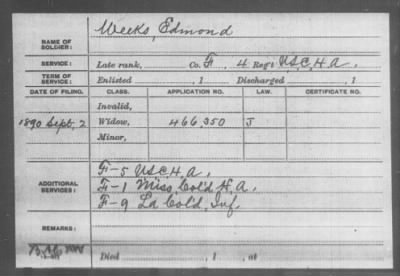 NAME OF SOLDIER: Weeks, Edmond
SERVICE: Late rank, Co. F, 4 Reg't U.S.C.H.A.
TERM OF SERVICE: Enlisted , 1 Discharged , 1
DATE OF FILING. CLASS. APPLICATION NO. LAW. CERTIFICATE NO.
Invalid,
1890 Sept. 2 Widow, 466,350 J
Minor,
F-5 U.S.C.H.A.
ADDITIONAL SERVICES: F-1 Miss. Col'd H.A.
F-9 La Col'd. Inf.
REMARKS:
Died , 1 , at